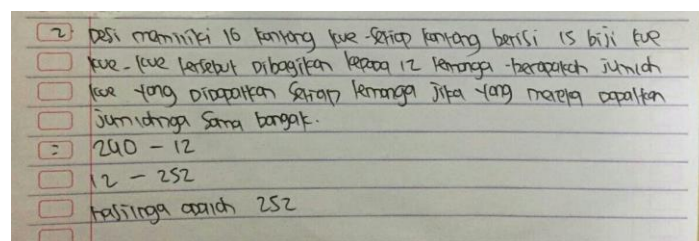 2) Desi memiliki 16 kantong kue. Setiap kantong berisi 15 biji kue
kue-kue tersebut Dibagikan kepada 12 temannya. berapakah jumlah
kue yang Didapatkan Setiap temannya jika yang mereka dapatkan
jumlahnya Sama banyak.
= 240 - 12
12 - 252
hasilnya adalah 252